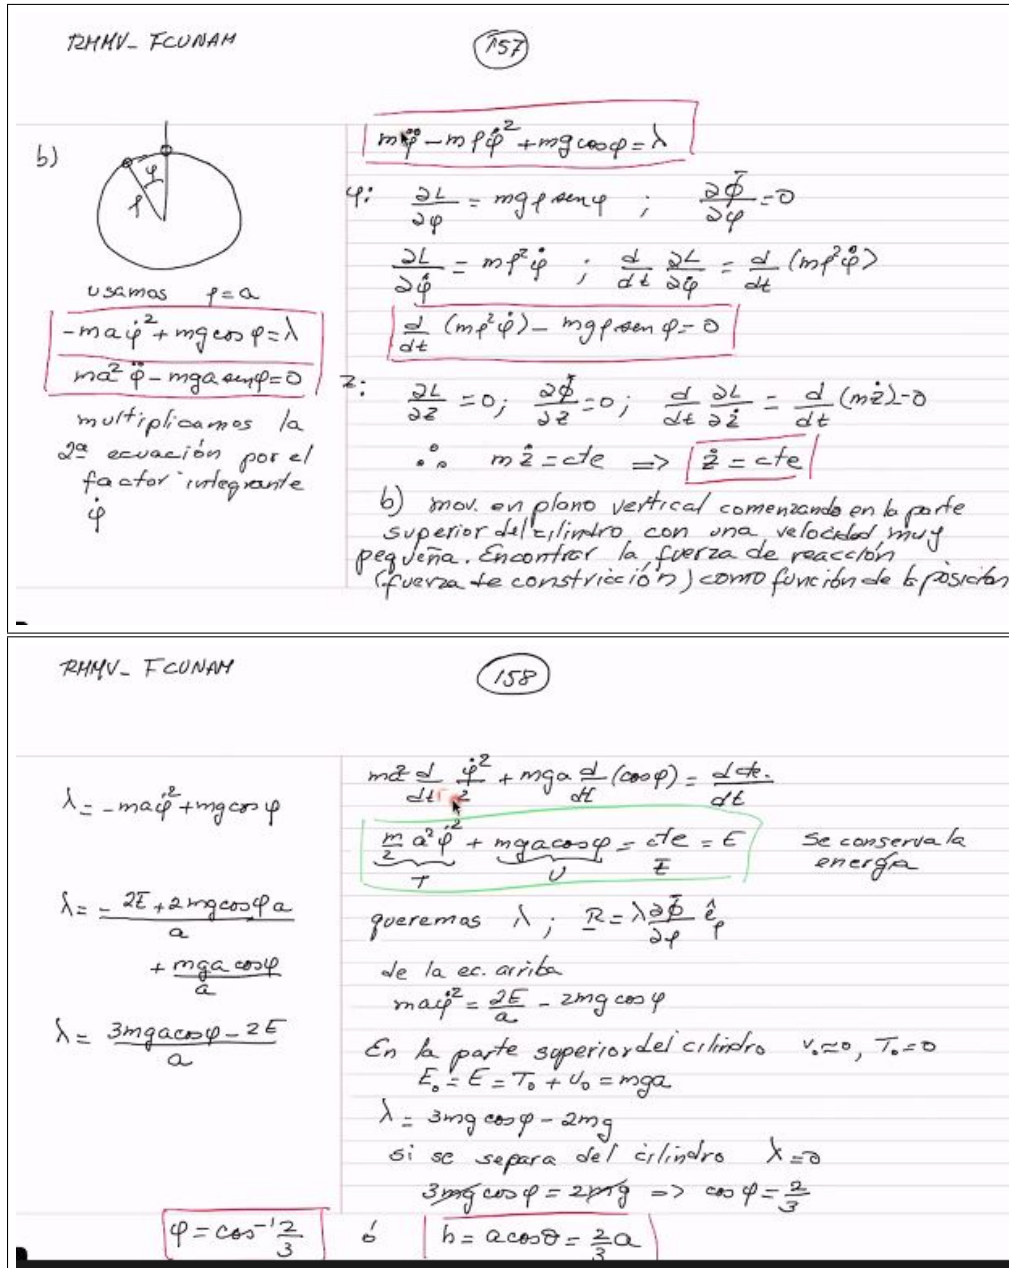 RMMV_ FCUNAM
157
b)
φ
ρ
usamos ρ=a
-maφ̇² + mg cos φ = λ
ma² φ̈ - mga sen φ = 0
multiplicamos la
2ª ecuación por el
factor integrante
φ̇
mρ̈ - mρφ̇² + mg cos φ = λ
φ: ∂L/∂φ = mgρ sen φ ; ∂Φ/∂φ = 0
∂L/∂φ̇ = mρ² φ̇ ; d/dt ∂L/∂φ̇ = d/dt (mρ² φ̇)
d/dt (mρ² φ̇) - mgρ sen φ = 0
z: ∂L/∂z = 0; ∂Φ/∂z = 0; d/dt ∂L/∂ż = d/dt (mż) = 0
∴ mż = cte => ż = cte
b) mov. en plano vertical comenzando en la parte
superior del cilindro con una velocidad muy
pequeña. Encontrar la fuerza de reacción
(fuerza de constricción) como función de la posición
RMMV_ FCUNAM
158
λ = -maφ̇² + mg cos φ
λ = - 2E + 2mg cos φ a / a
+ mga cos φ / a
λ = 3mga cos φ - 2E / a
ma² d/dt φ̇²/2 + mga d/dt (cos φ) = d cte. / dt
m/2 a² φ̇² + mga cos φ = cte = E
T U E
Se conserva la
energía
queremos λ ; R = λ ∂Φ/∂ρ ê_ρ
de la ec. arriba
maφ̇² = 2E/a - 2mg cos φ
En la parte superior del cilindro v₀≈0, T₀=0
E₀ = E = T₀ + U₀ = mga
λ = 3mg cos φ - 2mg
si se separa del cilindro λ = 0
3mg cos φ = 2mg => cos φ = 2/3
φ = cos⁻¹ 2/3 ó h = a cos θ = 2/3 a